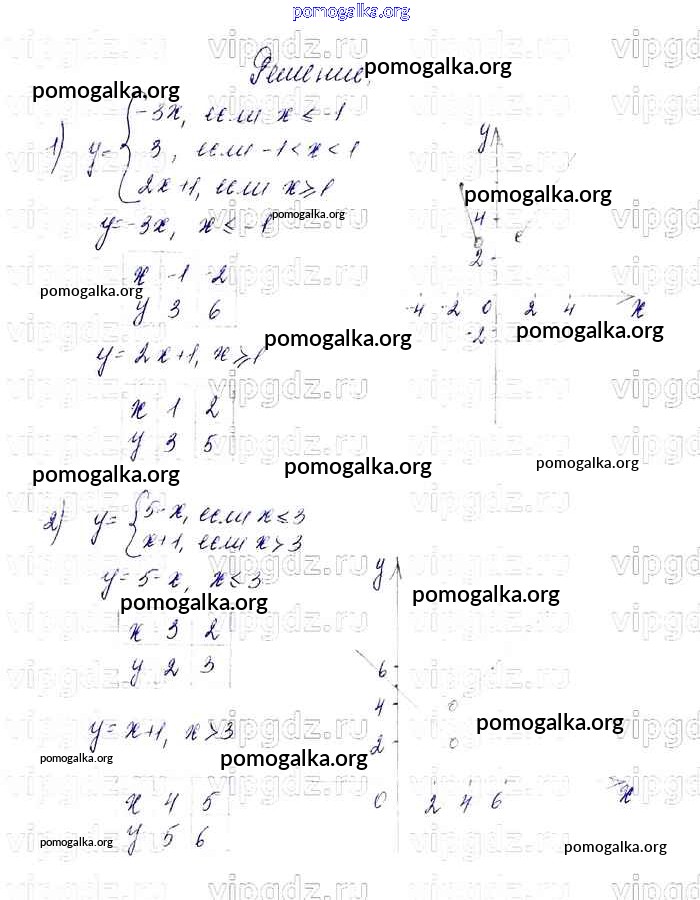 pomogalka.org
vipgdz.ru vipgdz.ru vipgdz.ru vipgdz.ru
Решение.
pomogalka.org
pomogalka.org
1) y = { -3x, если x ≤ -1
3, если -1 < x < 1
2x+1, если x ≥ 1
y = -3x, x ≤ -1
pomogalka.org
x -1 -2
y 3 6
pomogalka.org
y = 2x+1, x ≥ 1
pomogalka.org
x 1 2
y 3 5
pomogalka.org
y
pomogalka.org
4
2
-4 -2 0 2 4 x
-2
pomogalka.org
pomogalka.org
pomogalka.org
2) y = { 5-x, если x ≤ 3
x+1, если x > 3
y = 5-x, x ≤ 3
pomogalka.org
x 3 2
y 2 3
y = x+1, x > 3
pomogalka.org
pomogalka.org
x 4 5
y 5 6
pomogalka.org
y
pomogalka.org
6
4
pomogalka.org
2
0 2 4 6 x
pomogalka.org